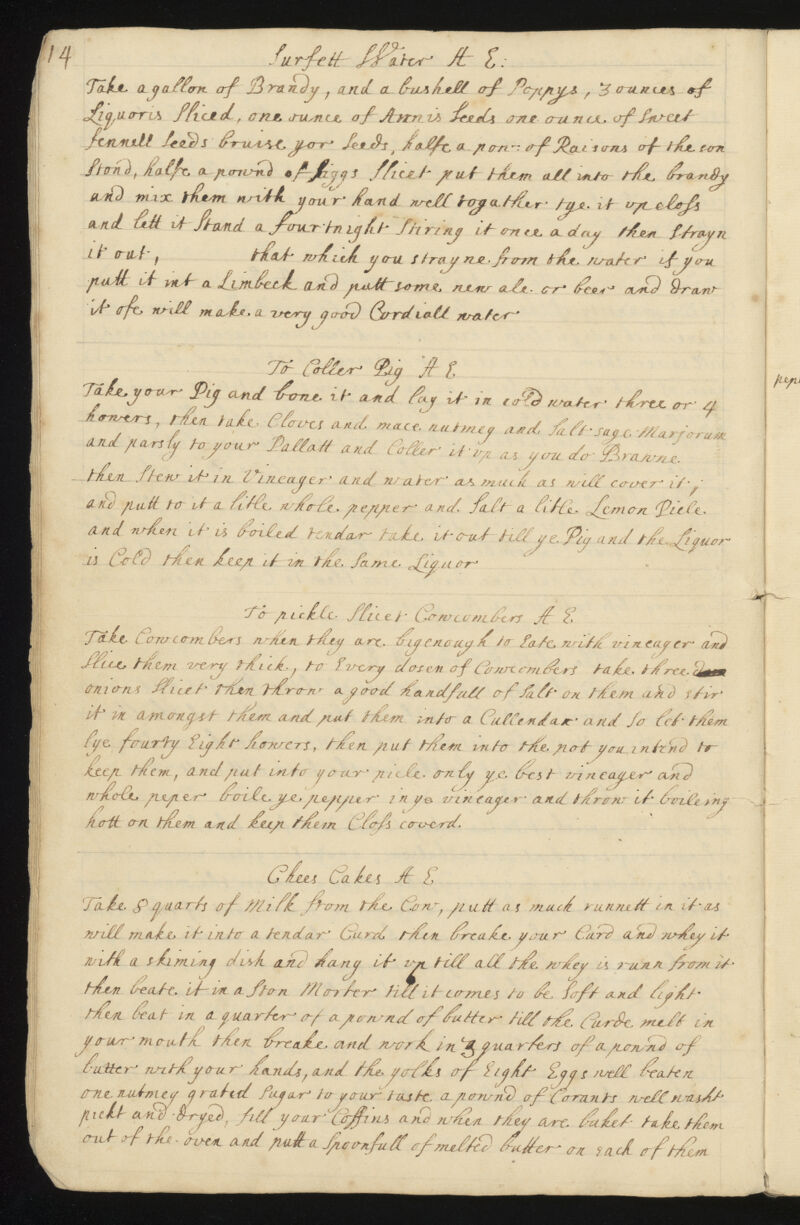 14
Surfett Water A E:
Take a gallon of Brandy, and a bushell of Poppys, 3 ounces of
Liquoris Sliced, one ounce of Annis Seeds one ounce of Sweet
fennell Seeds bruise yor Seeds, halfe a pon: of Raisons of the son
Stond, halfe a pownd of figgs Slicet put them all into the brandy
and mix them with your hand well togather tye it vp closs
and lett it Stand a fourtnight Stiring it once a day then Strayn
it out, that which you strayne from the water if you
putt it int a Limbeck and putt some new ale or beer and draw
it ofe will make a very good Cordiall water
To Coller Pig A E
Take your Pig and bone it and lay it in cold water three or 4
howers, then take Cloves and mace nutmeg and Salt sage Marjorum
and parsly to your Pallatt and Coller it vp as you do Brawne
then Stew it in Vineager and water as much as will cover it,
and putt to it a litle whole pepper and Salt a litle Lemon Piele
and when it is boiled tendar take it out till ye Pig and the Liquor
is Cold then keep it in the Same Liquor
To pickle Slicet Cowcombers A E
Take Cowcombers when they are bigenough to Eate with vineager and
Slice them very thick, to Every dosen of Cowcombers take three
onions Slicet then throw a good handfull of Salt on them and stir
it in amongst them and put them into a Cullendar and So let them
lye fourty Eight howers, then put them into the pot you intend to
keep them, and put into your picle only ye best vineager and
whole peper boile ye pepper in ye vineager and throw it boileing
hott on them and keep them Closs coverd.
Chees Cakes A E
Take 8 quarts of Milk from the Cow, putt as much runnett in it as
will make it into a tendar Curd then breake your Curd and whey it
with a skiming dish and hang it vp till all the whey is runn from it
then beate it in a Ston Morter till it comes to be Soft and light
then beat in a quarter of a pownd of butter till the Curde melt in
your mouth then breake and work in 3 quarters of a pownd of
butter with your hands, and the yolks of Eight Eggs well beaten
one nutmeg grated Sugar to your taste a pownd of Corants well washt
pickt and dryed, fill your Coffins and when they are baket take them
out of the oven and putt a Spoonfull of melted butter on Each of them
pep